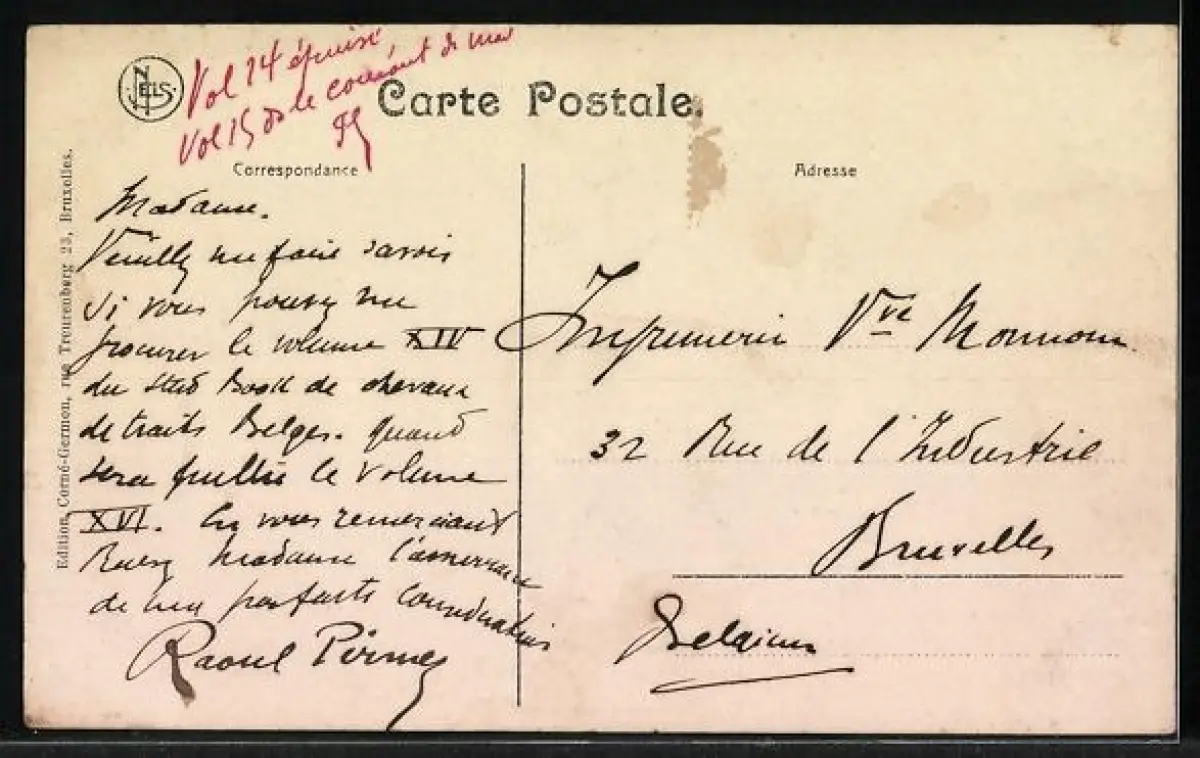 NELS
Vol 14 épuisé
Vol 15 le courant de mai
Carte Postale.
Correspondance
Adresse
Madame.
Veuillez me faire savoir
si vous pouvez me
procurer le volume XIV
du Stud Book de chevaux
de traits Belges. Quand
sera publié le volume
XVI. En vous remerciant
Recevez Madame l'assurance
de ma parfaite considération
Raoul Pirmez
Imprimerie Vve Monnom
32 Rue de l'Industrie
Bruxelles
Belgium
Edition, Corné-Germon, rue Treurenberg 23, Bruxelles.